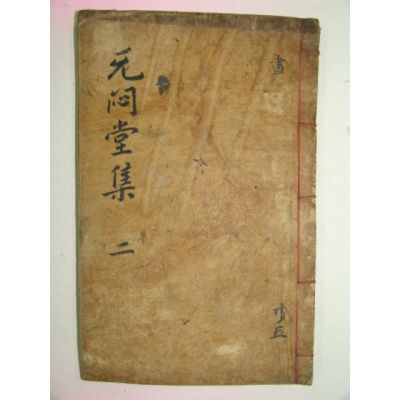 書
无悶堂集 二
共五